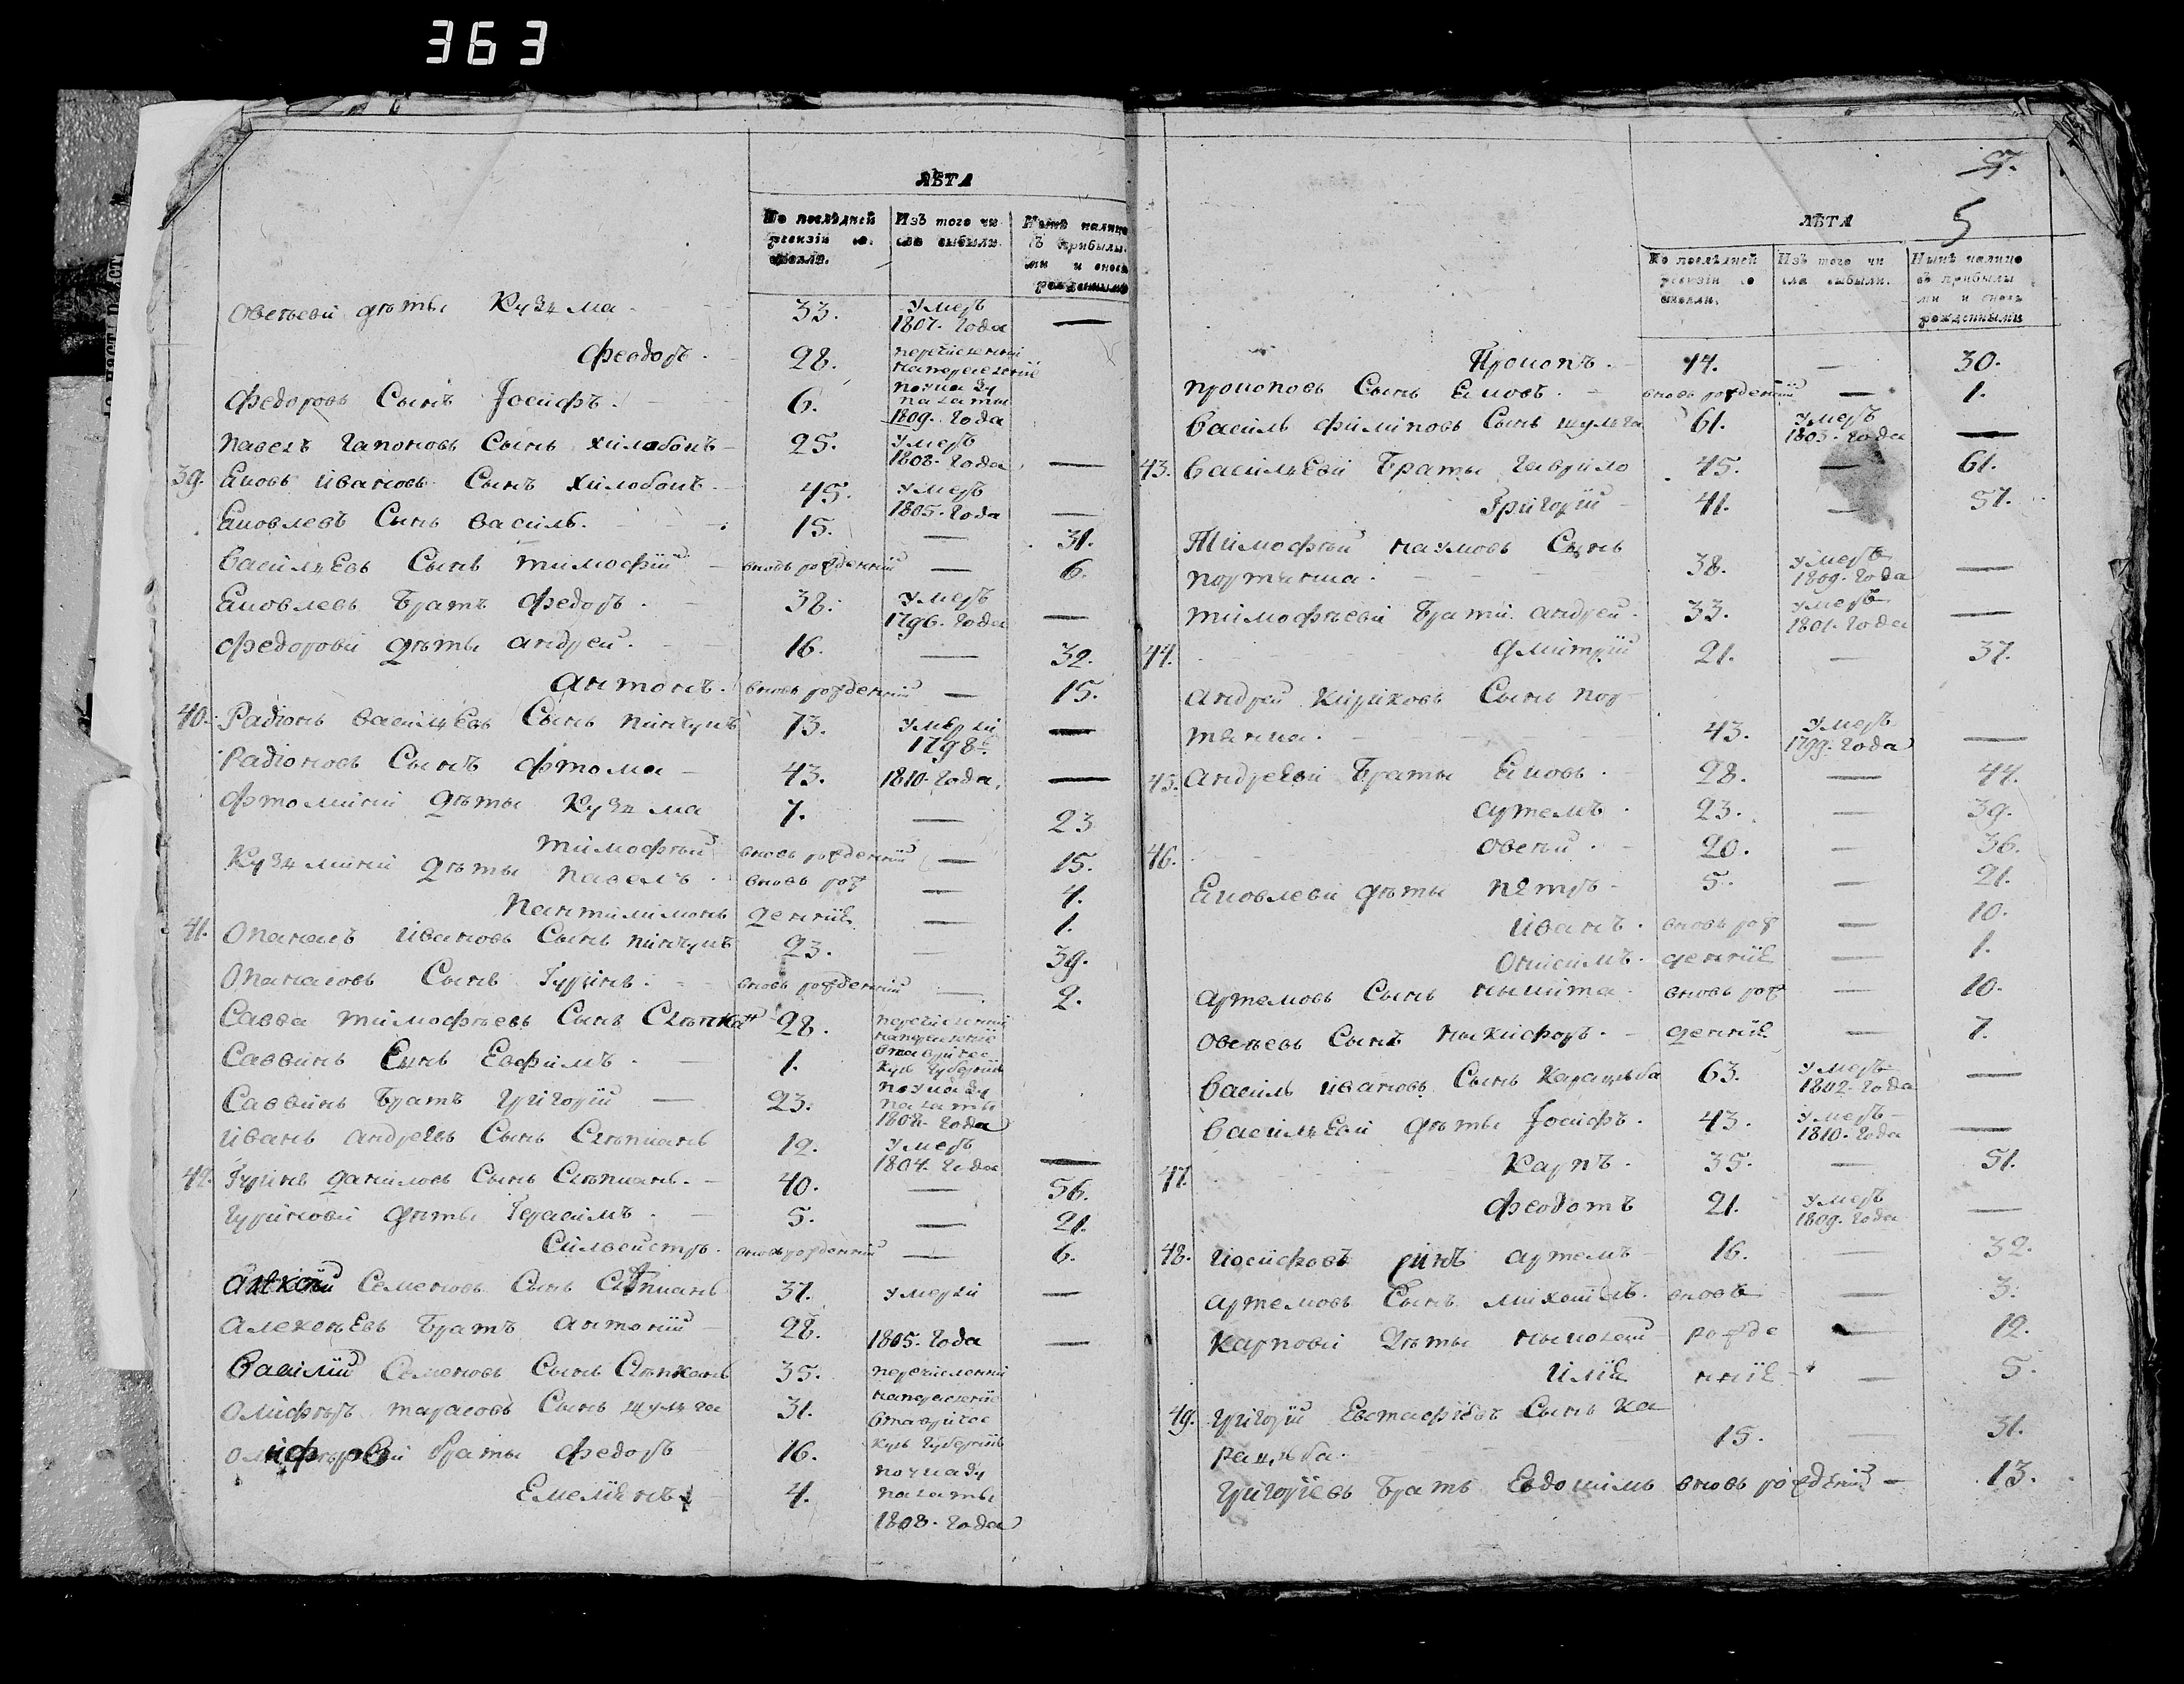 363
ЛѢТА
По послѣдней ревизіи со- | Изъ того чи- | Нынѣ налицо
стояло. | сла выбыли. | съ прибылы-
ми и вновь
рожденными
Овсѣеви дѣты Кузма - 33. умеръ 1807. года —
Феодоръ. 28. перечисленній
Федоровъ Сынъ Іосифъ. 6. 1809. года
Павелъ Гапоновъ Сынъ Хилобокъ - 25. умеръ 1808. года —
39. Яковъ Ивановъ Сынъ Хилобокъ. 45. умеръ 1805. года —
Яковлевъ Сынъ Василь. 15. — 31.
Васильевъ Сынъ Тимофій - вновь рожденній — 6.
Яковлевъ Братъ Федоръ. 38. умеръ 1796. года —
Федорови дѣты Андрей. 16. — 32.
Антонъ. вновь рожденній — 15.
40. Радіонъ Васильевъ Сынъ 73. умерли 1798 —
Радіоновъ Сынъ Фтома - 43. 1810. года, —
Фтомини Дѣты Кузма 7. — 23
Тимофѣй вновь рожденній — 15.
Кузмини Дѣты Павелъ. вновь рож — 4.
Пантилимонъ денніе — 1.
41. Опанасъ Ивановъ Сынъ 23. — 39.
Опанасовъ Сынъ Гуринъ. вновь рожденній — 2.
Савва Тимофѣевъ Сынъ 28. перечисленній
Саввинъ Сынъ Евфимъ. 1.
Саввинъ Братъ Григорій — 23. 1808. года
Иванъ Андреевъ Сынъ Слѣпканъ 12. умеръ 1804. года —
42. Гуринъ Даниловъ Сынъ Слѣпканъ. - 40. — 56.
Гуринови дѣты Герасимъ. 5. — 21.
Силвейстръ. вновь рожденній — 6.
Алексѣй Семеновъ Сынъ Слѣпканъ 37. умерли —
Алексѣевъ Братъ Антоній - 28. 1805. года —
Василій Семеновъ Сынъ Слѣпканъ 35. перечисленни
Олифѣръ Тарасовъ Сынъ Шульга 31.
Олифѣрови браты Федоръ 16.
Емелянъ 4. 1808. года
9.
5
ЛѢТА
По послѣдней ревизіи со- | Изъ того чи- | Нынѣ налицо
стояли. | сла выбыли. | съ прибылы-
ми и вновь
рожденными
Прокопъ. 14. — 30.
Прокоповъ Сынъ Яковъ. вновь рожденній — 1.
Василь Филиповъ Сынъ Шульга 61. умеръ 1803. года —
43. Васильеви Браты Гаврило 45. — 61.
Григорій 41. — 57.
Тимофѣй Наумовъ Сынъ
Портянка. 38. умеръ 1809. года —
Тимофѣеви Брати Андрей. 33. умеръ 1801. года —
44. Дмитрій 21. — 37.
Андрей Кириковъ Сынъ Пор-
тянка. 43. умеръ 1799. года —
45. Андрееви Браты Яковъ. 28. — 44.
Артемъ. 23. — 39.
46. Овсѣй. 20. — 36.
Яковлеви дѣты Петръ. 5. — 21.
Иванъ. вновь рож — 10.
Онисимъ. денніе — 1.
Артемовъ Сынъ Никита. вновь рож — 10.
Овсѣевъ Сынъ Никифоръ. денніе — 7.
Василь Ивановъ Сынъ Карацюба 63. умеръ 1802. года —
Васильеви дѣты Іосифъ. 43. умеръ 1810. года —
47. Карпъ. 35. — 51.
Феодотъ 21. умеръ 1809. года —
48. Иосифовъ синъ Артемъ 16. — 32.
Артемовъ Сынъ Михаилъ. вновь — 3.
Карпови Дѣты Николай рожде — 12.
Иліе нніе — 5.
49. Григорій Евстафіевъ Сынъ Ка-
рацюба. 15. — 31.
Григоріевъ Братъ Евдокимъ вновь рожденній — 13.